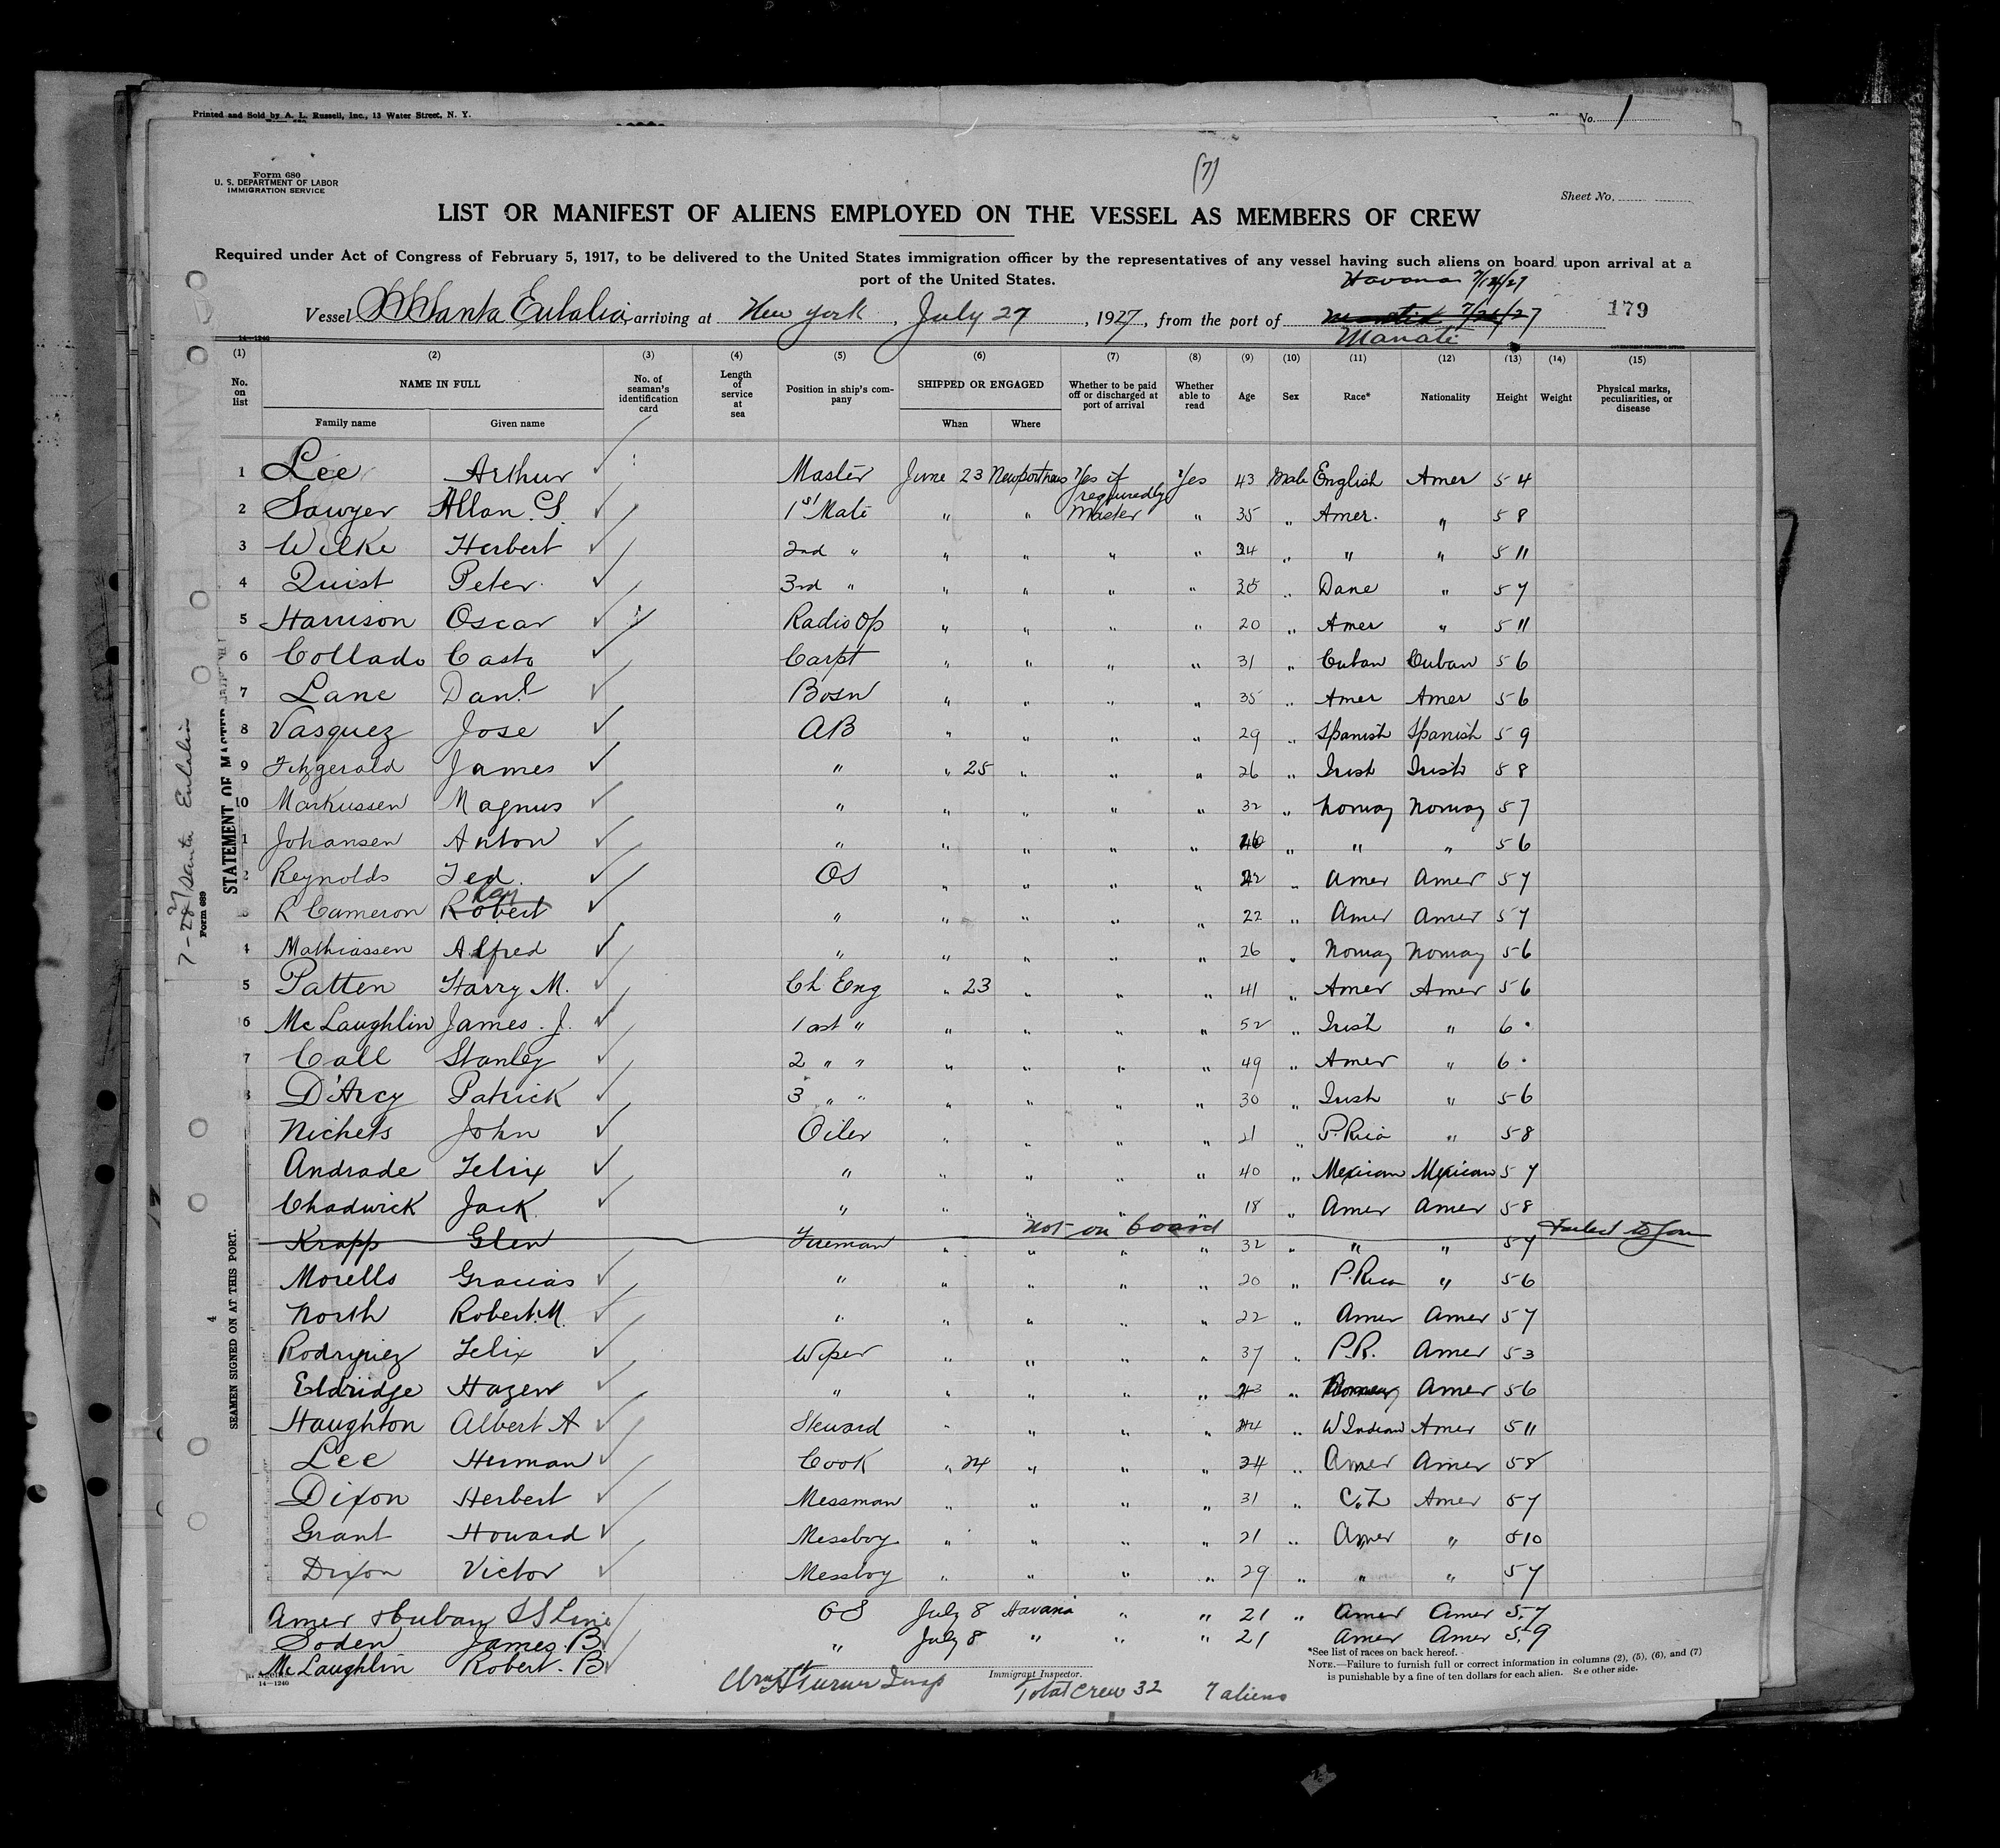 Printed and Sold by A. L. Russell, Inc., 13 Water Street, N. Y.
No. 1
(7)
Form 680
U. S. DEPARTMENT OF LABOR
IMMIGRATION SERVICE
Sheet No.
LIST OR MANIFEST OF ALIENS EMPLOYED ON THE VESSEL AS MEMBERS OF CREW
Required under Act of Congress of February 5, 1917, to be delivered to the United States immigration officer by the representatives of any vessel having such aliens on board upon arrival at a
port of the United States.
Havana
Vessel SS Santa Eulalia, arriving at New York, July 27, 1927, from the port of
Manati
179
14—1240
(1) (2) (3) (4) (5) (6) (7) (8) (9) (10) (11) (12) (13) (14) (15)
No. on list NAME IN FULL Family name Given name No. of seaman's identification card Length of service at sea Position in ship's company SHIPPED OR ENGAGED When Where Whether to be paid off or discharged at port of arrival Whether able to read Age Sex Race* Nationality Height Weight Physical marks, peculiarities, or disease
1 Lee Arthur Master June 23 Newport News Yes if Yes 43 Male English Amer 5 4
2 Sawyer Allan. S. 1st Mate " " Master " 35 " Amer. " 5 8
3 Wilke Herbert 2nd " " " " " 24 " " " 5 11
4 Quist Peter 3rd " " " " " " Dane " 5 7
5 Harrison Oscar Radio Op " " " " 20 " Amer " 5 11
6 Collado Casto Carpt " " " " 31 " Cuban Cuban 5 6
7 Lane Danl Bosn " " " " 35 " Amer Amer 5 6
8 Vasquez Jose AB " " " " 29 " Spanish Spanish 5 9
9 Fitzgerald James " " 25 " " " 26 " Irish Irish 5 8
10 Markussen Magnus " " " " " 32 " Norway Norway 5 7
1 Johansen Anton " " " " " " " " 5 6
2 Reynolds Ted. OS " " " " 22 " Amer Amer 5 7
R Cameron Robert " " " " " 22 " Amer Amer 5 7
4 Mathiassen Alfred " " " " " 26 " Norway Norway 5 6
5 Patten Harry M. Ch Eng " 23 " " " 41 " Amer Amer 5 6
6 McLaughlin James. J. 1 ast " " " " " 52 " Irish " 6 "
7 Call Stanley 2 " " " " " " 49 " Amer " 6 "
8 D'Arcy Patrick 3 " " " " " " 30 " Irish " 5 6
Nichels John Oiler " " " " 21 " P. Rico " 5 8
Andrade Felix " " " " " 40 " Mexican Mexican 5 7
Chadwick Jack " " " " " 18 " Amer Amer 5 8
not on board
Krapp Glen Fireman " " " " 32 " " " 5 7 Failed to Join
Morells Gracias " " " " " 20 " P. Rico " 5 6
North Robert. M. " " " " " 22 " Amer Amer 5 7
Rodriguez Felix Wiper " " " " 37 " P.R. Amer 5 3
Eldridge Hazen " " " " " " Amer 5 6
Haughton Albert A Steward " " " " 44 " W Indian Amer 5 11
Lee Herman Cook " 24 " " " 24 " Amer Amer 5 8
Dixon Herbert Messman " " " " 31 " C. Z Amer 5 7
Grant Howard Messboy " " " " 21 " Amer " 5 10
Dixon Victor Messboy " " " " 29 " " " 5 7
Amer & Cuban S S Line OS July 8 Havana " " 21 " Amer Amer 5. 7
Soden James. B. " July 8 " " " 21 Amer Amer 5. 9
McLaughlin Robert. B
*See list of races on back hereof.
NOTE.—Failure to furnish full or correct information in columns (2), (5), (6), and (7)
is punishable by a fine of ten dollars for each alien. See other side.
14—1240
Turner Insp
Immigrant Inspector.
Total Crew 32 7 aliens
Santa Eulalia
Form 689
STATEMENT OF MASTER
4
SEAMEN SIGNED ON AT THIS PORT.